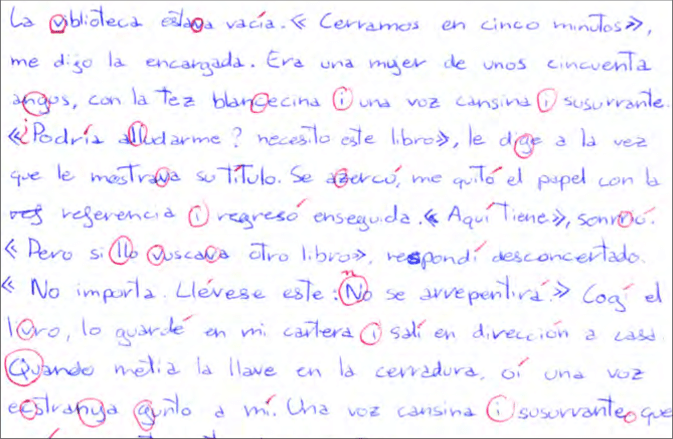 La viblioteca estava vacía. « Cerramos en cinco minutos»,
me dijo la encargada. Era una mujer de unos cincuenta
angos, con la tez blancecina i una voz cansina i susurrante.
«¿Podría alludarme? necesito este libro», le dige a la vez
que le mostrava su título. Se azercó, me quitó el papel con la
referencia i regresó enseguida. « Aquí tiene», sonrió.
« Pero si llo vuscava otro libro», respondí desconcertado.
« No importa. Llévese este: No se arrepentirá.» Cogí el
livro, lo guardé en mi cartera i salí en dirección a casa.
Quando metia la llave en la cerradura, oí una voz
ecstranya gunto a mí. Una voz cansina i susurrante que